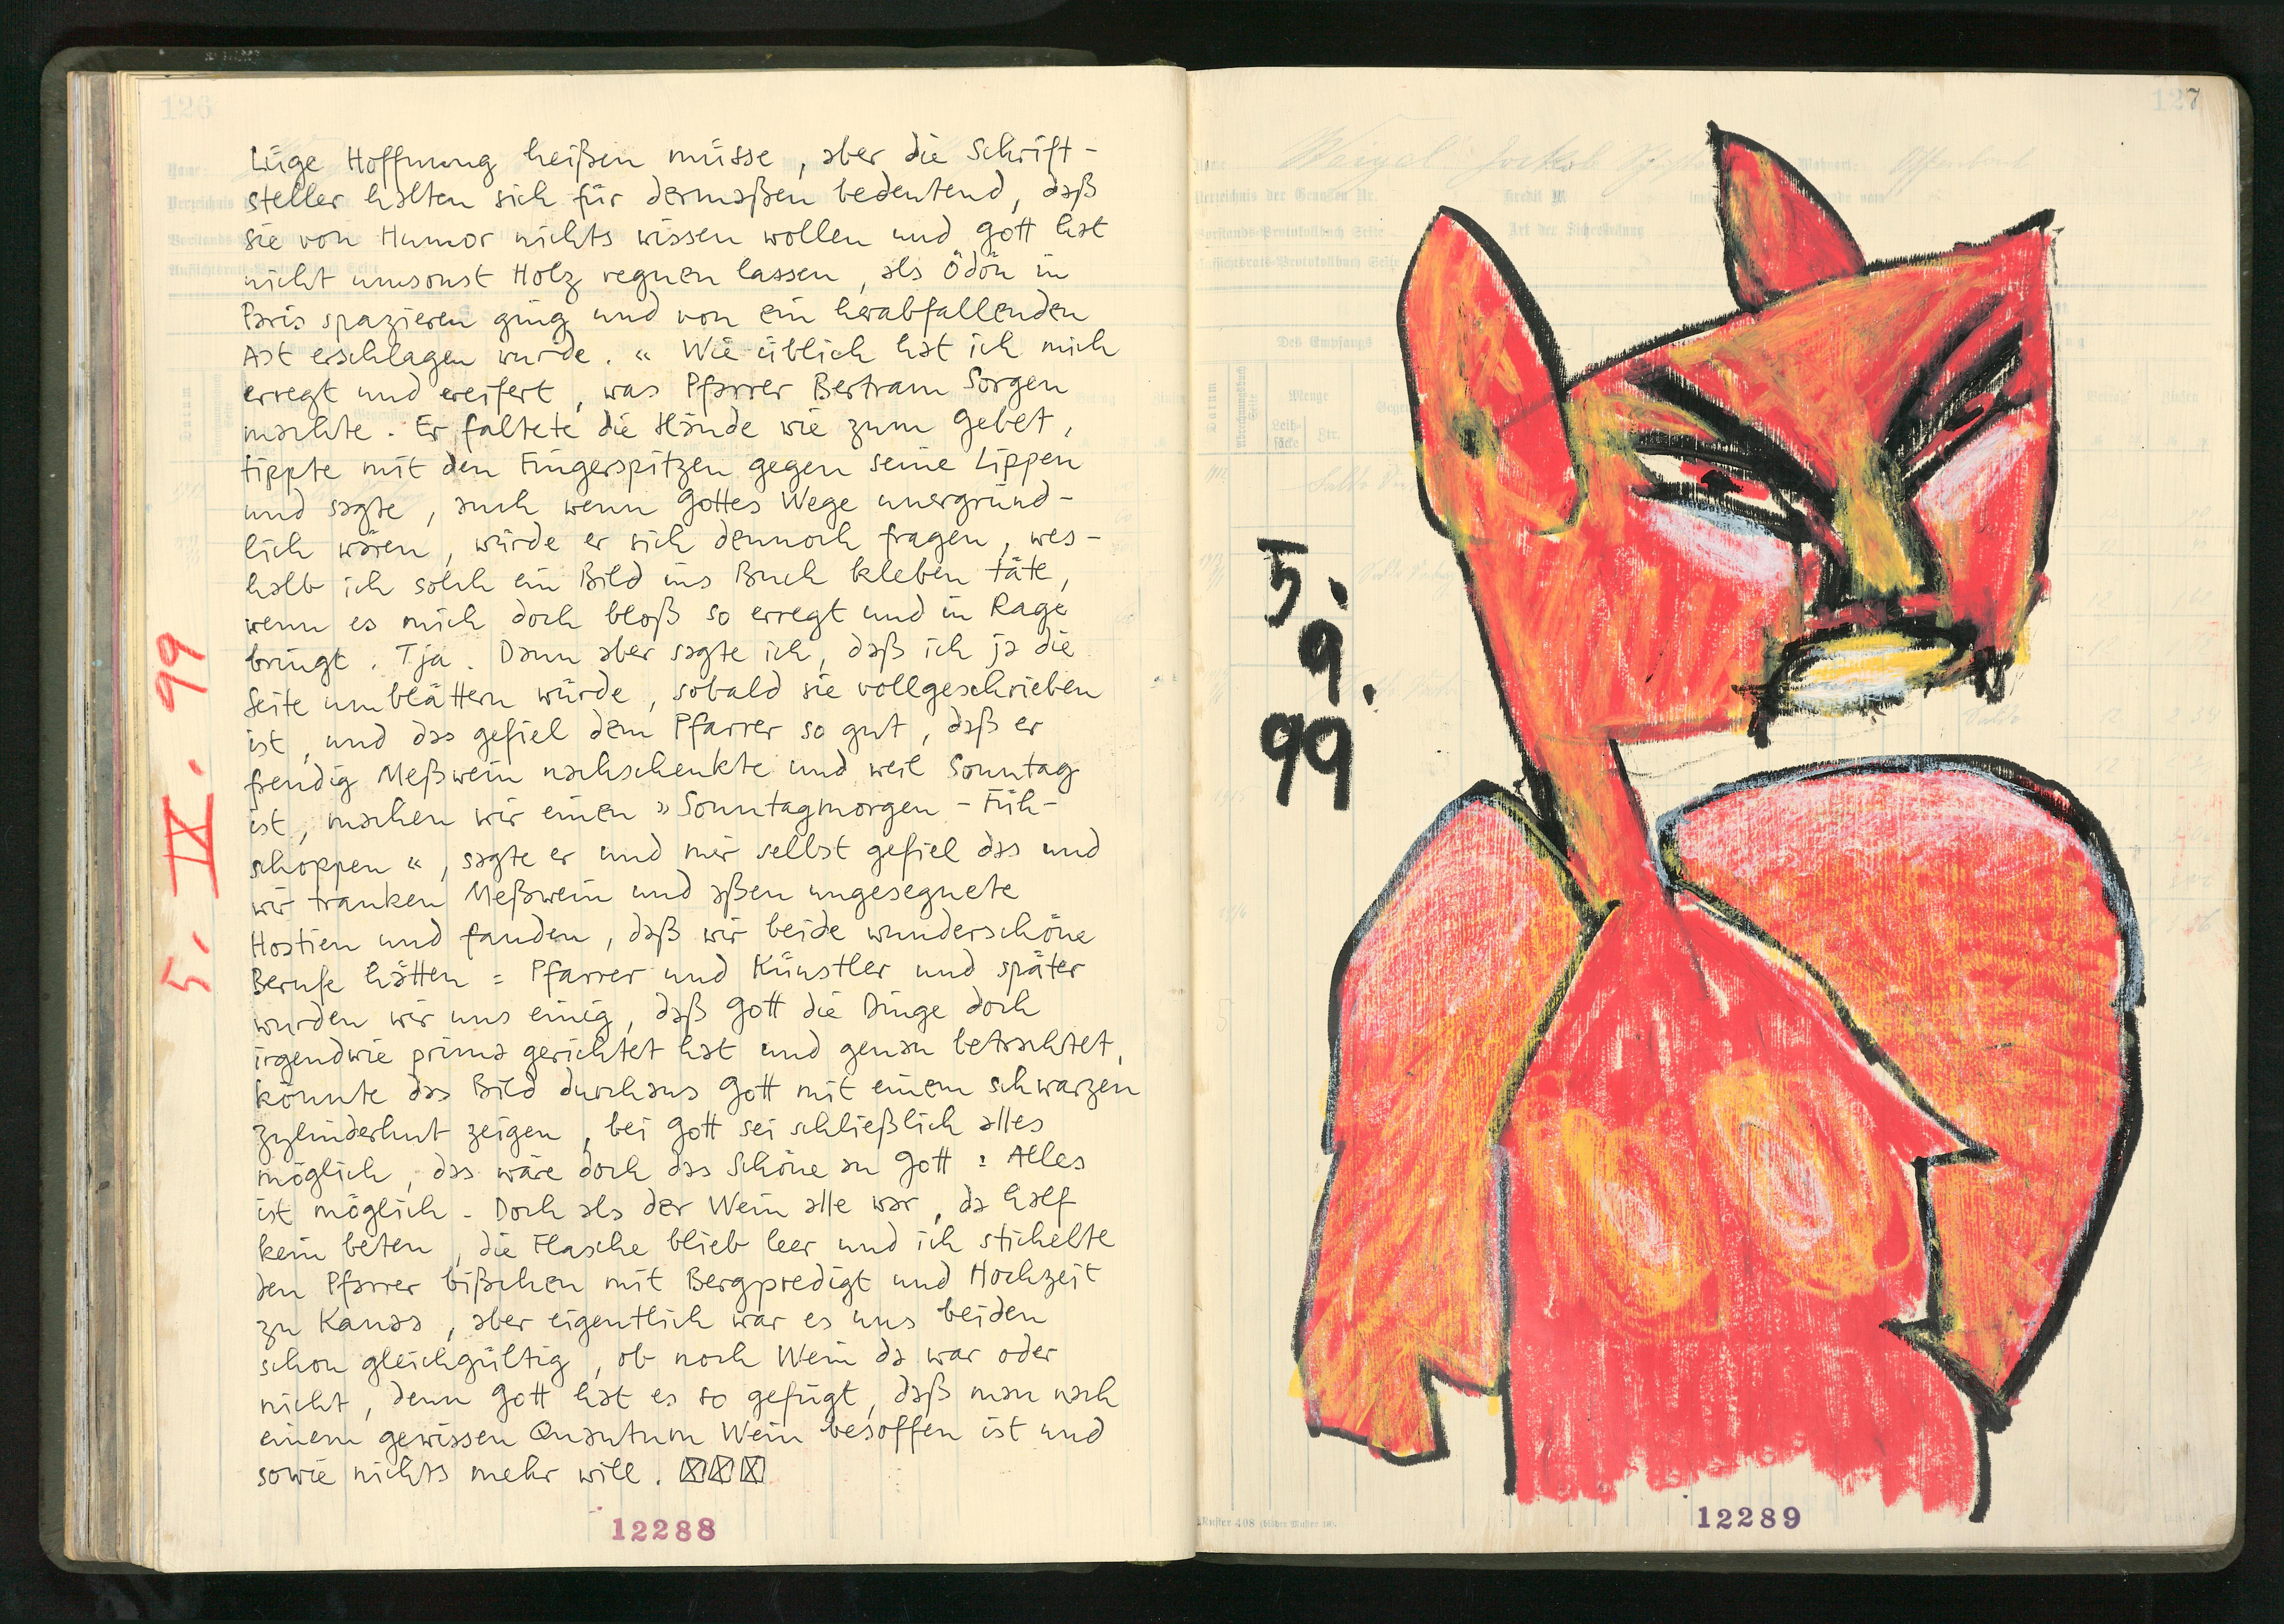 126
Lüge Hoffnung heißen müsse, aber die Schrift-
steller halten sich für dermaßen bedeutend, daß
sie von Humor nichts wissen wollen und Gott hat
nicht umsonst Holz regnen lassen, als Ödön in
Paris spazieren ging und von ein herabfallenden
Ast erschlagen wurde. « Wie üblich hat ich mich
erregt und ereifert, was Pfarrer Bertram Sorgen
machte. Er faltete die Hände wie zum Gebet,
tippte mit den Fingerspitzen gegen seine Lippen
und sagte, auch wenn Gottes Wege unergründ-
lich wären, würde er sich dennoch fragen, wes-
halb ich solch ein Bild ins Buch kleben täte,
wenn es mich doch bloß so erregt und in Rage
bringt. Tja. Dann aber sagte ich, daß ich ja die
Seite umblättern würde, sobald sie vollgeschrieben
ist, und das gefiel dem Pfarrer so gut, daß er
freudig Meßwein nachschenkte und weil Sonntag
ist, machen wir einen »Sonntagmorgen-Früh-
schoppen«, sagte er und mir selbst gefiel das und
wir tranken Meßwein und aßen ungesegnete
Hostien und fanden, daß wir beide wunderschöne
Berufe hätten = Pfarrer und Künstler und später
wurden wir uns einig, daß Gott die Dinge doch
irgendwie prima gerichtet hat und genau betrachtet,
könnte das Bild durchaus Gott mit einem schwarzen
Zylinderhut zeigen, bei Gott sei schließlich alles
möglich, das wäre doch das Schöne an Gott: Alles
ist möglich. Doch als der Wein alle war, da half
kein beten, die Flasche blieb leer und ich stichelte
den Pfarrer bißchen mit Bergpredigt und Hochzeit
zu Kanaa, aber eigentlich war es uns beiden
schon gleichgültig, ob noch Wein da war oder
nicht, denn Gott hat es so gefügt, daß man nach
einem gewissen Quantum Wein besoffen ist und
sowie nichts mehr will.
5. IX. 99
12288
127
Verzeichnis der Genossen Nr.
Vorstands-Protokollbuch Seite
Aufsichtsrats-Protokollbuch Seite
Kredit M
Art der Sicherstellung
Des Empfangs
Datum
Menge
5.
9.
99
Muster 408
12289